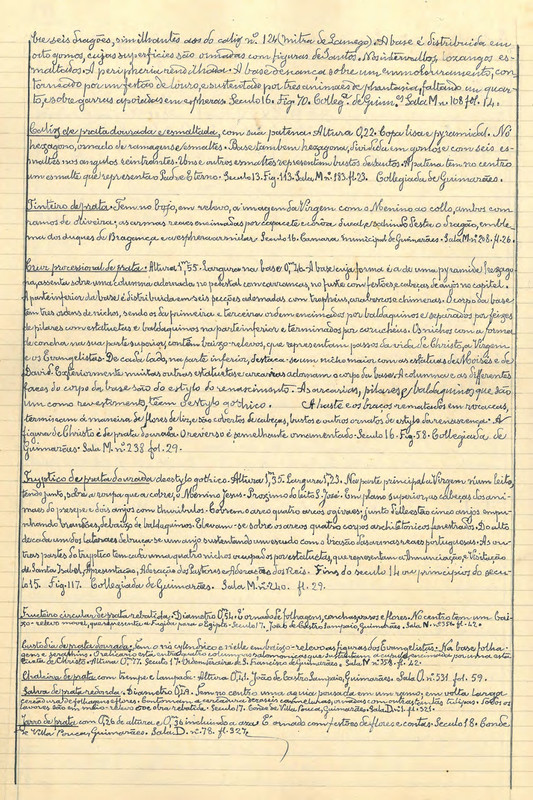 bre seis dragões, similhantes aos do calix nº 124 (mitra de Lamego). A base é distribuida em
oito gomos, cujas superficies são ornadas com figuras de Santos. Nos intervallos, lozangos es-
maltados. A peripheria rendilhada. A base descança sobre um emmolduramento, con-
torneado por um festão de louro, e sustentado por tres animaes de phantasia, faltando um quar-
to, e sobre garras apoiadas em espheras. Seculo 16. Fig. 70. Colleg. de Guim.es Sala M nº 108 fol. 14.
Calix de prata dourada e esmaltada, com sua patena. Altura 0,22. Copa lisa e pyramidal. Nó
hexagono, ornado de ramagens e esmaltes. Base tambem hexagona, dividida em gomos e com seis es-
maltes nos angulos reintrantes. Uns e outros esmaltes representam bustos de Santos. A patena tem no centro
um esmalte que representa o Padre Eterno. Seculo 13. Fig. 113. Sala M nº 183. fl. 23. Collegiada de Guimarães.
Tinteiro de prata. Tem no bojo, em relevo, a imagem da Virgem com o Menino ao collo, ambos com
ramos de oliveira; as armas reaes encimadas por capacete e corôa ducal, e sahindo d'esta o dragão, emble-
ma dos duques de Bragança, e a esphera armilar. Seculo 16. Camara municipal de Guimarães. Sala M nº 208. fl. 26.
Cruz processional de prata. Altura 1m,55. Largura na base 0m,46. A base cuja forma é a de uma pyramide hexago-
na, assenta sobre uma columna adornada no pedestal com carrancas, no fuste com festões e cabeças de anjos no capitel.
A parte inferior da base é distribuida em seis secções adornadas com tropheus, arabescos e chimeras. O corpo da base
tem tres ordens de nichos, sendo os da primeira e terceira ordem encimados por baldaquinos e separados por feixes
de pilares com estatuetas e baldaquinos na parte inferior e terminados por coruchéus. Os nichos com a forma
de concha na sua parte superior, contém baixo-relevos, que representam passos da vida de Christo, a Virgem
e os Evangelistas. De cada lado, na parte inferior, destaca-se um nicho maior com as estatuas de Moisés e de
David. Exteriormente muitas outras estatuetas e arcarias adornam o corpo da base. A columna e as differentes
faces do corpo da base são do estylo do renascimento. As arcarias, pilares e baldaquinos que são
um como revestimento, teem o estylo gothico. A haste e os braços rematados em rocaccas,
terminam á maneira de flores de liz e são cobertos de cabeças, bustos e outros ornatos de estylo da renascença. A
figura de Christo é de prata dourada. O reverso é similhante ornamentado. Seculo 16. Fig. 58. Collegiada de
Guimarães. Sala M. nº 238 fol. 29.
Tryptico de prata dourada de estylo gothico. Altura 1m,35. Largura 1m,23. Na parte principal a Virgem n'um leito,
tendo junto, sobre a roupa que a cobre, o Menino Jesus. Proximo do leito S. José. Em plano superior, as cabeças dos ani-
maes do presepe e dois anjos com thuribulos. Cobrem o arco quatro arcos ogivaes; junto d'elles estão cinco anjos empu-
nhando brandões, debaixo de baldaquinos. Elevam-se sobre os arcos quatro corpos architectonicos fenestrados. Do alto
de cada um dos lateraes debruça-se um anjo sustentando um escudo com o brazão das armas reaes portuguesas. As ou-
tras partes do tryptico tem cada uma quatro nichos occupados por estatuetas, que representam a Annunciação, Visitação
de Santa Isabel, Apresentação, Adoração dos Pastores e Adoração dos Reis. Fins do seculo 14 ou principios do secu-
lo 15. Fig. 117. Collegiada de Guimarães. Sala M. nº 240. fl. 29.
Fructeiro circular de prata rebatida. Diametro 0,24. É ornado de folhagens, conchas, passaros e flores. No centro tem um bai-
xo-relevo movel, que representa a fugida para o Egypto. Seculo 17. João de Castro Sampaio, Guimarães. Sala N. nº 335 fl. 42.
Custodia de prata dourada. Tem o nó cylindrico e n'elle em baixo-relevo as figuras dos Evangelistas. Na base folha-
gens e seraphins.
cruz de Christo. Altura 0,77. Seculo 17. Ordem terceira de S. Francisco de Guimarães. Sala N nº 358 fl. 42.
Chaleira de prata com trempe e lampada. Altura 0,41. João de Castro Sampaio, Guimarães. Sala O. nº 531 fol. 59.
Salva de prata redonda. Diametro 0,29. Tem no centro uma aguia pousada em um ramo; em volta larga
cercadura de folhagens e flores.
lavores são em meio-relevo e de obra rebatida. Seculo 17. Conde de Villa Pouca, Guimarães. Sala D. nº 1. fl. 321.
Jarro de prata com 0,26 de altura e 0,36 incluindo a aza. É ornado com festões de flores e contas. Seculo 18. Conde
de Villa Pouca, Guimarães. Sala D. nº 78. fl. 327.